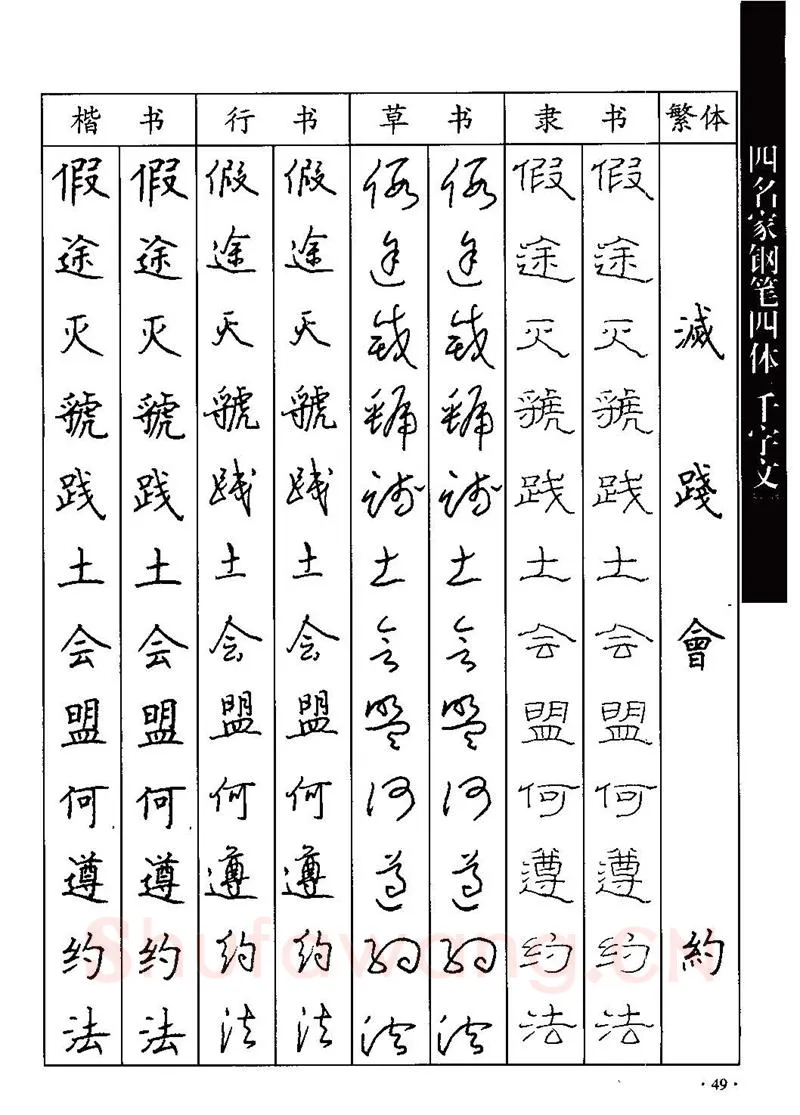 四名家钢笔四体《千字文》
楷书 行书 草书 隶书 繁体
假途灭虢践土会盟何遵约法
假途灭虢践土会盟何遵约法
假途灭虢践土会盟何遵约法
假途灭虢践土会盟何遵约法
假途灭虢践土会盟何遵约法
假途灭虢践土会盟何遵约法
假途灭虢践土会盟何遵约法
假途灭虢践土会盟何遵约法
滅踐會約
Shufawang.CN
·49·